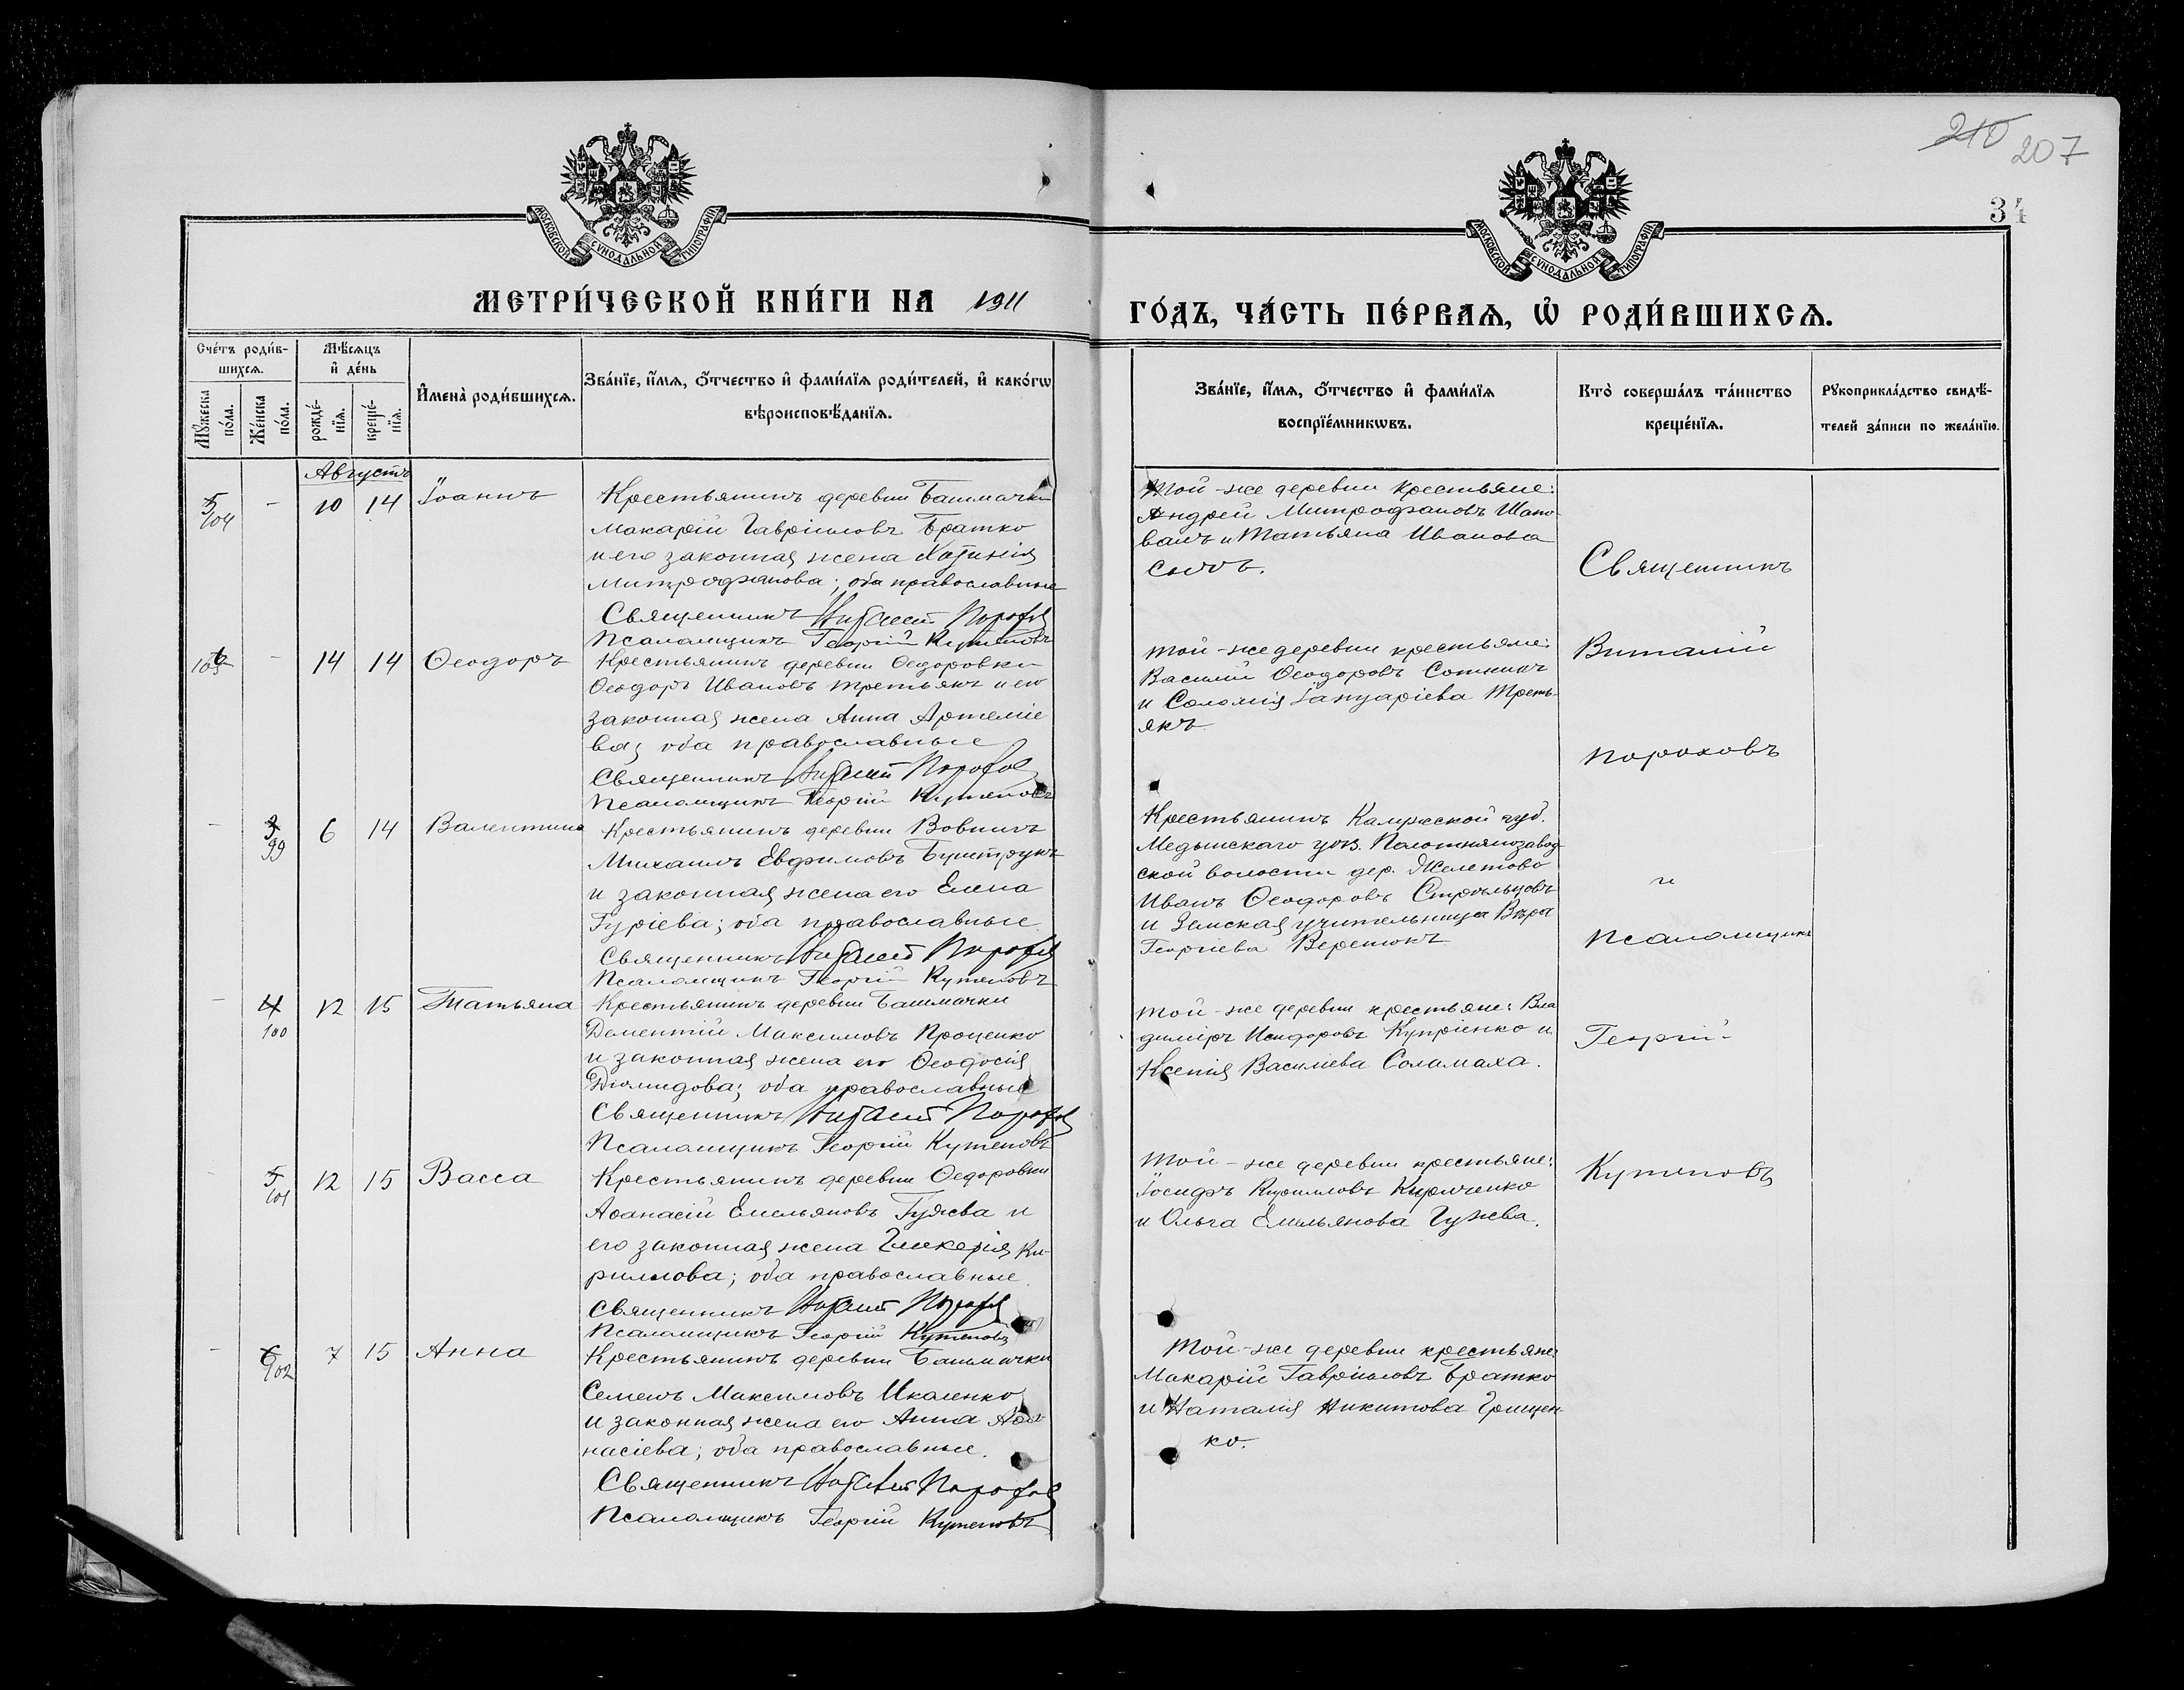 210 207
34
МОСКОВСКОЙ СѴНОДАЛЬНОЙ ТИПОГРАФІИ
МОСКОВСКОЙ СѴНОДАЛЬНОЙ ТИПОГРАФІИ
МЕТРИ́ЧЕСКОЙ КНИ́ГИ НА 1911
ГО́ДЪ, ЧА́СТЬ ПЕ́РВАѦ, Ѽ РОДИ́ВШИХСѦ.
Сче́тъ роди́в-
шихсѧ.
Мꙋ́жеска по́ла.
Же́нска по́ла.
Мѣ́сѧцъ
и҆ де́нь
рожде́-
нїѧ.
креще́-
нїѧ.
И҆мена̀ роди́вшихсѧ.
Зва́нїе, и҆́мѧ, ѻ҆́тчество и҆ фами́лїѧ роди́телей, и҆ како́гѡ
вѣроисповѣ́данїѧ.
Зва́нїе, и҆́мѧ, ѻ҆́тчество и҆ фами́лїѧ
воспрїе́мникѡвъ.
Кто̀ соверша́лъ та́инство
креще́нїѧ.
Рꙋкоприкла́дство свидѣ́-
телей за́писи по жела́нїю.
Августъ
5
104
- 10 14 Іоаннъ
Крестьянинъ деревни Башмачки
Макарій Гавріиловъ Братко
и его законная жена
Митрофанова; оба православные
Священникъ Виталій Порохов
Псаломщикъ Георгій Кутеповъ
Той-же деревни крестьяне:
Андрей Митрофановъ Шапо
валъ и Татьяна Иванова
Сычъ.
Священникъ
105 - 14 14 Ѳеодоръ
Крестьянинъ деревни Ѳедоровки
Ѳеодоръ Ивановъ Третьякъ и его
законная жена Анна Артеміе
ва; оба православные
Священникъ Виталій Порохов
Псаломщикъ Георгій Кутеповъ
Той-же деревни крестьяне:
Василій Ѳеодоровъ Сотникъ
и Соломія Іануаріева Треть-
якъ.
Виталій
Пороховъ
- 3
99
6 14 Валентина
Крестьянинъ деревни Вовнигъ
Михаилъ Евфимовъ
и законная жена его Елена
Гуріева; оба православные
Священникъ Виталій Порохов
Псаломщикъ Георгій Кутеповъ
Крестьянинъ Калужской губ.
Медынскаго уѣз. Полотнянозавод
ской волости дер. Желетово
Иванъ Ѳеодоровъ Стрѣльцовъ
и Земская учительница Вѣра
Георгіева Веретюкъ
и
Псаломщикъ
- 4
100
12 15 Татьяна
Крестьянинъ деревни Башмачки
Доментій Максимовъ Проценко
и законная жена его Ѳеодосія
Діомидова; оба православные
Священникъ Виталій Порохов
Псаломщикъ Георгій Кутеповъ
Той-же деревни крестьяне: Вла
димиръ Исидоровъ Купріенко и
Ксенія Василіева Соламаха.
Георгій
- 5
101
12 15 Васса
Крестьянинъ деревни Ѳедоровки
Аѳанасій Емельяновъ Гужва и
его законная жена Гликерія Ки-
риллова; оба православные.
Священникъ Виталій Порохов
Псаломщикъ Георгій Кутеповъ
Той-же деревни крестьяне:
Іосифъ Кирилловъ Кириченко
и Ольга Емельянова Гужва.
Кутеповъ
- 6
102
7 15 Анна
Крестьянинъ деревни Башмачки
Семенъ Максимовъ Икаленко
и законная жена его Анна Аѳа
насіева; оба православные.
Священникъ Виталій Порохов
Псаломщикъ Георгій Кутеповъ
Той-же деревни крестьяне
Макарій Гавріиловъ Братко
и Наталія Никитова Грищен
ко.